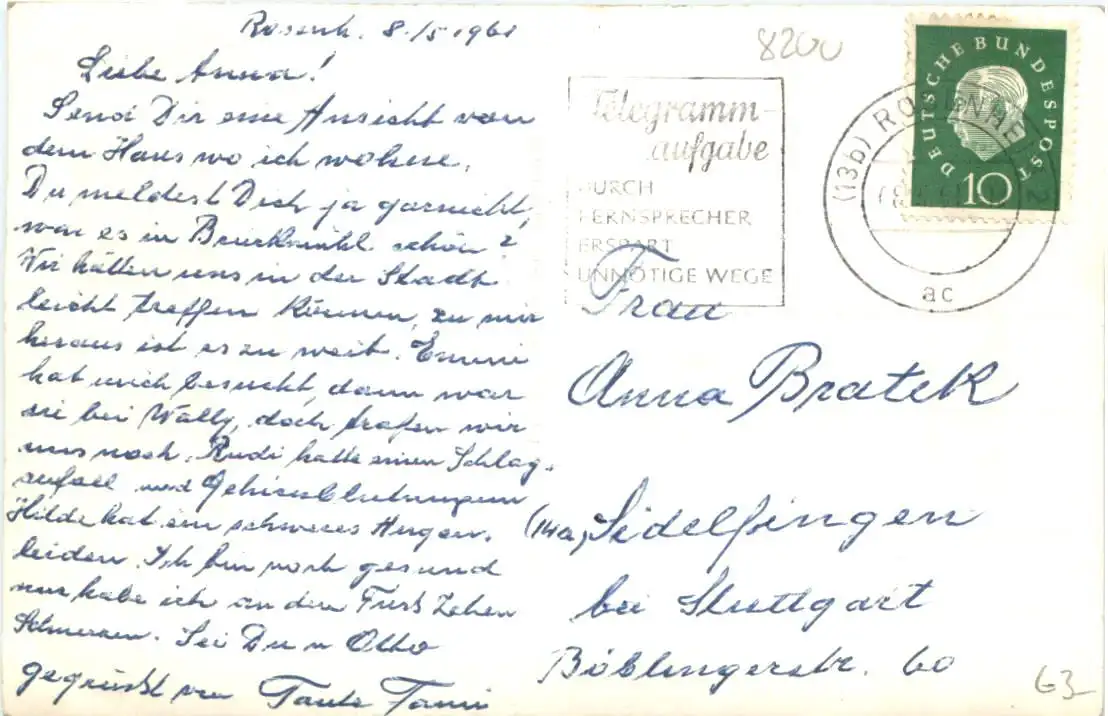 Rosenh. 8./5 1961
Liebe Anna!
Send Dir eine Ansicht von
dem Haus wo ich wohne.
Du meldest Dich ja garnicht,
war es in Bruckmühl schön?
Wir hätten uns in der Stadt
leicht treffen können, zu mir
heraus ist es zu weit. Emmi
hat mich besucht, dann war
sie bei Wally, doch trafen wir
uns noch. Rudi hatte einen Schlag-
anfall und Gehirnblutungen
Hilde hat ein schweres Augen-
leiden. Ich bin noch gesund
nur habe ich an den Fuss Zehen
Schmerzen. Sei Du u Otto
gegrüsst von Tante Fanni
8200
Telegramm-
aufgabe
DURCH
FERNSPRECHER
ERSPART
UNNÖTIGE WEGE
DEUTSCHE BUNDESPOST
10
(13b) ROSENHEIM 2
ac
Frau
Anna Bratek
(14a) Sidelfingen
bei Stuttgart
Böblingerstr. 60
63